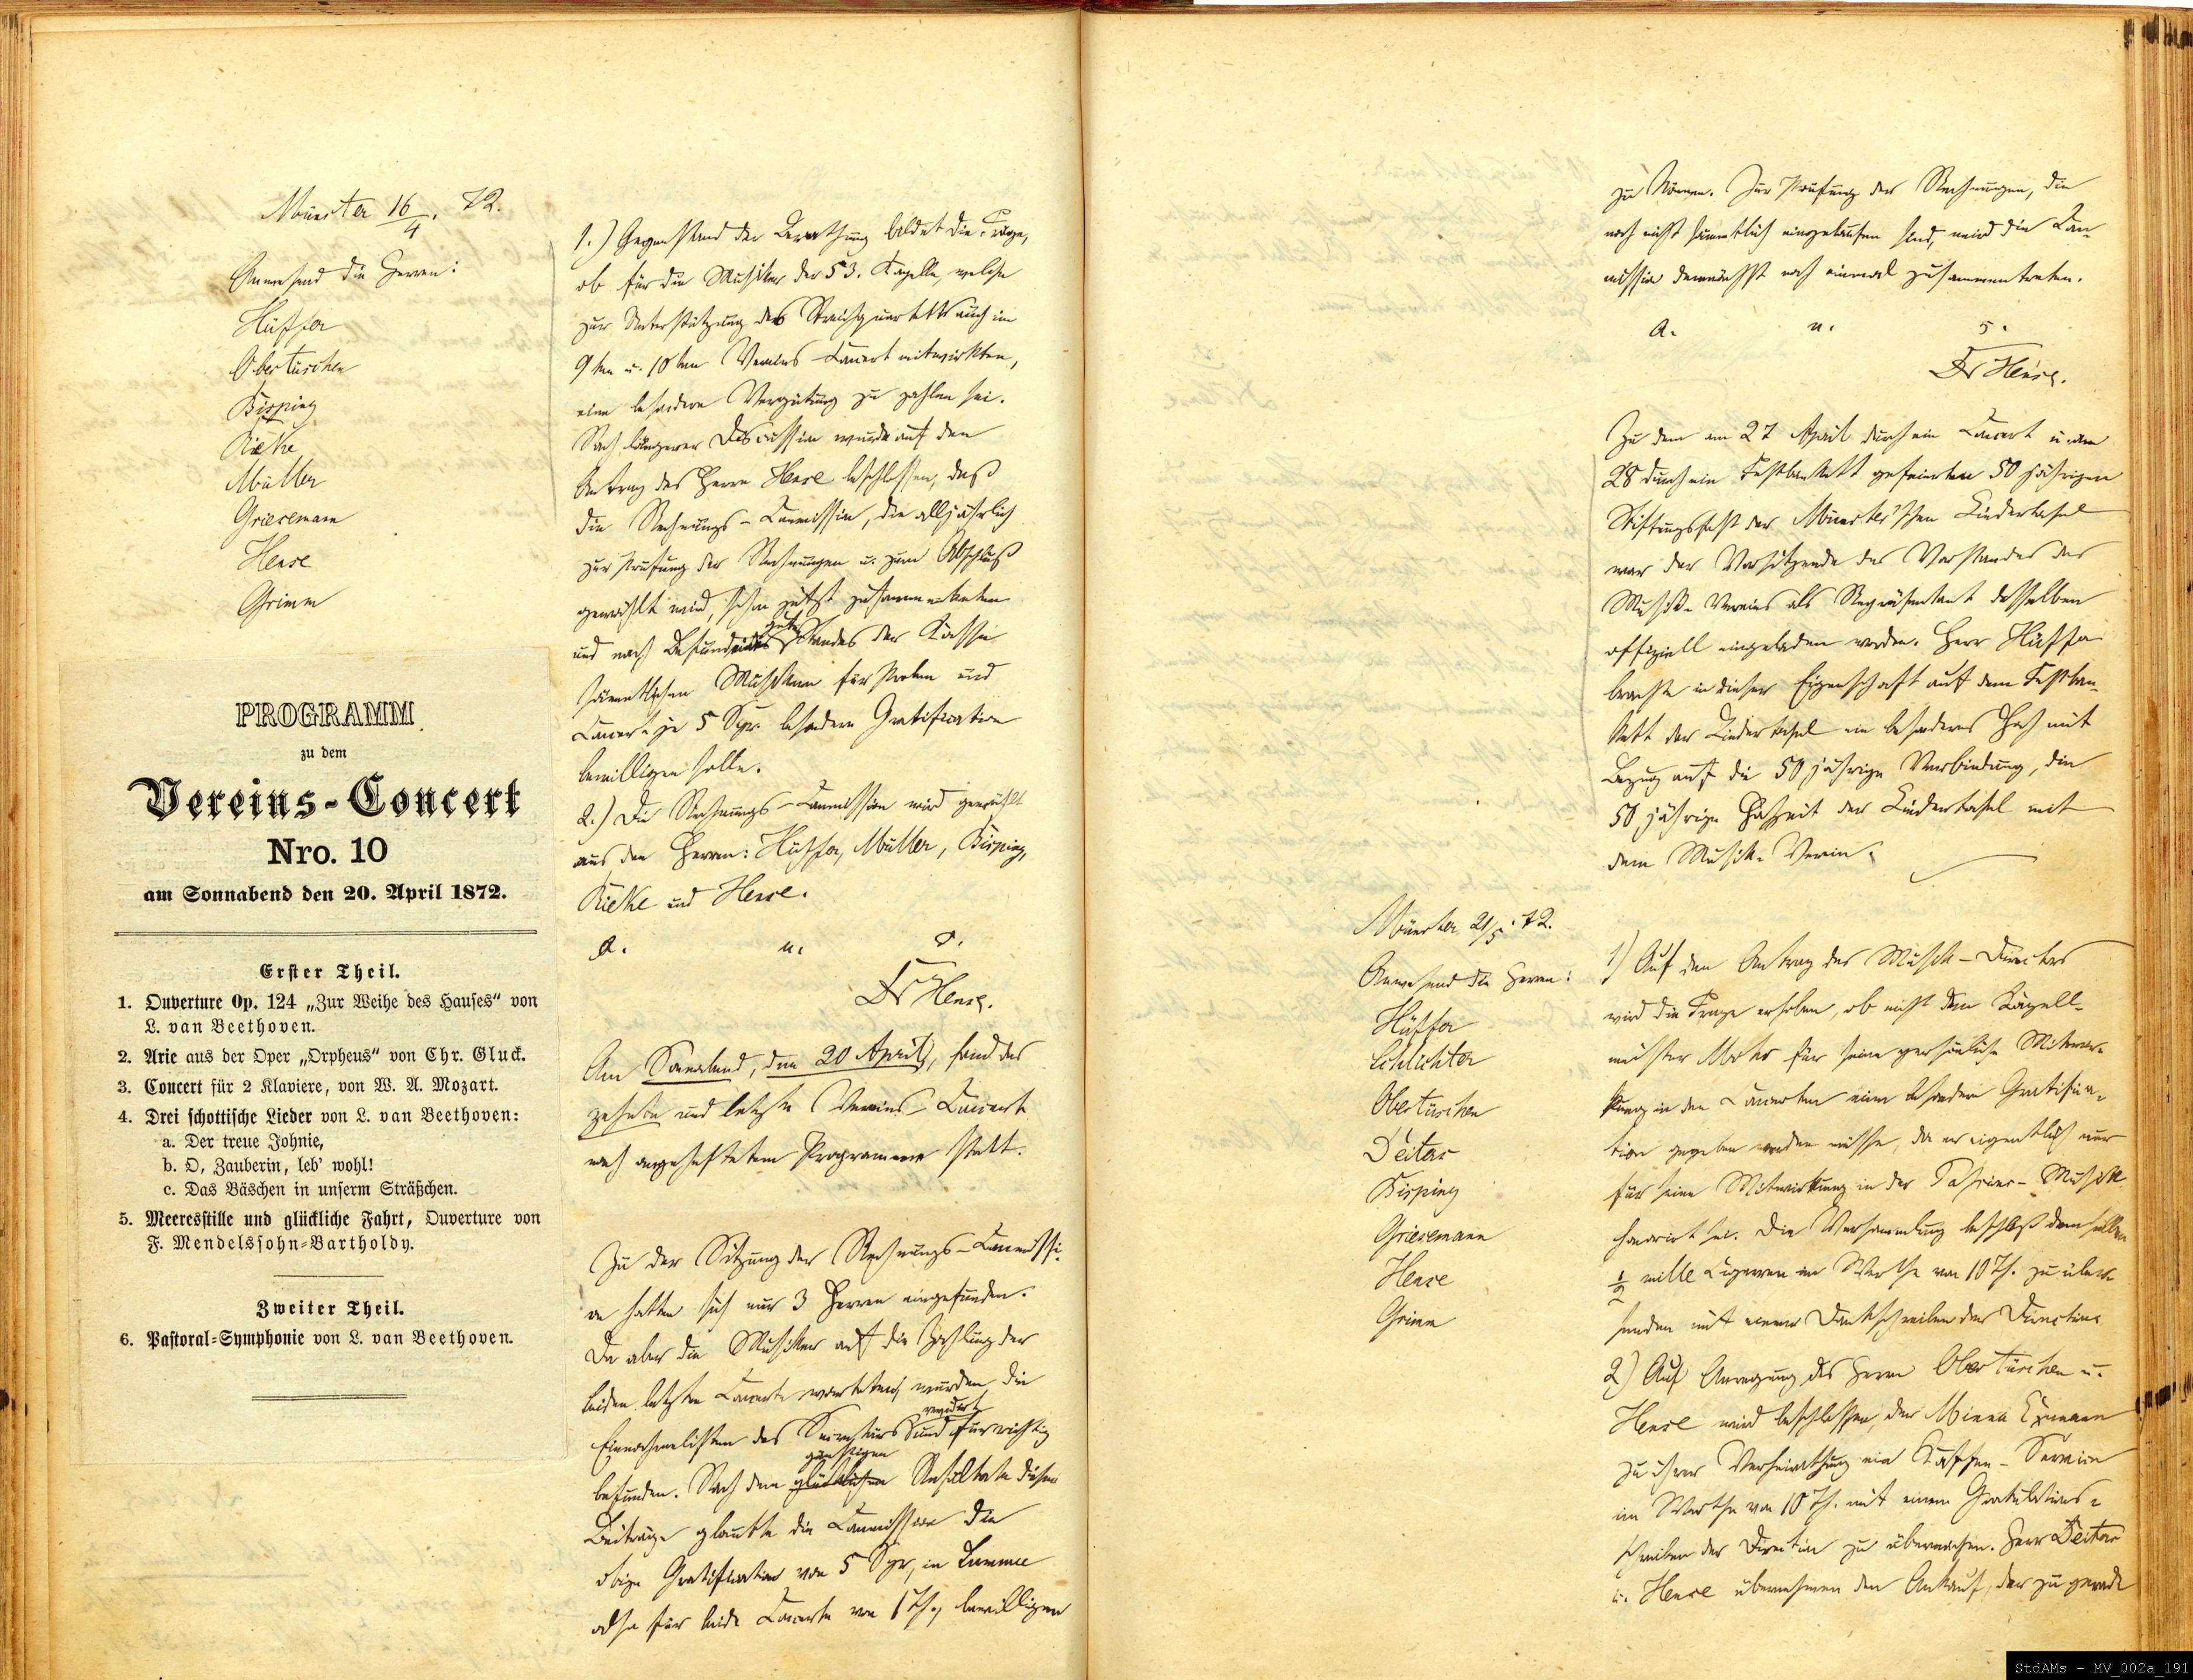 Münster 16/4. 72.
Anwesend die Herren:
Hüffer
Obertüschen
Bisping
Rieke
Müller
Griesemann
Hense
Grimm
PROGRAMM
zu dem
Vereins-Concert
Nro. 10
am Sonnabend den 20. April 1872.
Erster Theil.
1. Ouverture Op. 124 „Zur Weihe des Hauses“ von
L. van Beethoven.
2. Arie aus der Oper „Orpheus“ von Chr. Gluck.
3. Concert für 2 Klaviere, von W. A. Mozart.
4. Drei schottische Lieder von L. van Beethoven:
a. Der treue Johnie,
b. O, Zauberin, leb' wohl!
c. Das Bäschen in unserm Sträßchen.
5. Meeresstille und glückliche Fahrt, Ouverture von
F. Mendelssohn-Bartholdy.
Zweiter Theil.
6. Pastoral-Symphonie von L. van Beethoven.
1.) Gegenstand der Berathung bildet die Frage,
ob für die Musiker der 53. Kapelle, welche
zur Unterstützung des Streichquartetts auch im
9ten u. 10ten Vereins-Concert mitwirkten,
eine besondere Vergütung zu zahlen sei.
Nach längerer Discussion wurde auf den
Antrag des Herrn Hense beschlossen, daß
die Rechnungs-Commission, die alljährlich
zur Prüfung der Rechnungen u. zum Abschluß
gewählt wird, schon jetzt zusammentreten
und nach Befund guten Standes der Kasse
sämmtlichen Musikern für Proben und
Concert je 5 Sgr. besondere Gratification
bewilligen solle.
2.) Die Rechnungs-Commission wird gewählt
aus den Herren: Hüffer, Müller, Bisping,
Rieke und Hense.
a. u. s.
Dr Hense.
Am Sonnabend, den 20 April, fand das
zehnte und letzte Vereins-Concert
nach angeheftetem Programme statt.
Zu der Sitzung der Rechnungs-Commissi-
on hatten sich nur 3 Herren eingefunden.
Da aber die Musiker auf die Zahlung der
beiden letzten Concerte warteten, wurden die
Einnahmelisten des revidirt und für richtig
befunden. Nach dem glücklichen günstigen Resultate dieser
Beiträge glaubte die Commission die
obige Gratification von 5 Sgr, in Summe
also für beide Concerte von 1 Th., bewilligen
zu können. Zur Prüfung der Rechnungen, die
noch nicht sämmtlich eingelaufen sind, wird die Com-
mission demnächst noch einmal zusammentreten.
a. u. s.
Dr Hense.
Zu dem am 27 April durch ein Concert u. den
28 durch ein Festbankett gefeierten 50 jährigen
Stiftungsfest der Münster'schen Liedertafel
war der Vorsitzende des Vorstandes des
Musik-Vereins als Repräsentant desselben
offiziell eingeladen worden. Herr Hüffer
brachte in dieser Eigenschaft auf dem Festban-
kett der Liedertafel ein besonderes Hoch mit
Bezug auf die 50 jährige Verbindung, die
50 jährige Hochzeit der Liedertafel mit
dem Musik-Verein.
Münster 21/5. 72.
Anwesend die Herren:
Hüffer
Schlichter
Obertüschen
Deiters
Bisping
Griesemann
Hense
Grimm
1) Auf den Antrag des Musik-Directors
wird die Frage erhoben, ob nicht dem Kapell-
meister für seine persönliche Mitwir-
kung in den Concerten eine besondere Gratifica-
tion gegeben werden müsse, da er eigentlich nur
für seine Mitwirkung in der Musik
honorirt sei. Die Versammlung beschloß demselben
½ mille Cigarren im Werthe von 10 Th. zu über-
senden mit einem Dankschreiben der Direction.
2) Auf Anregung des Herrn Obertüschen u.
Hense wird beschlossen, der Minna
zu ihrer Verheirathung ein Kaffee-Service
im Werthe von 10 Th. mit einem Gratulations-
schreiben der Direction zu überreichen. Herr Deiters
u. Hense übernehmen den Ankauf, der zu gerade
StdAMs - MV_002a_191